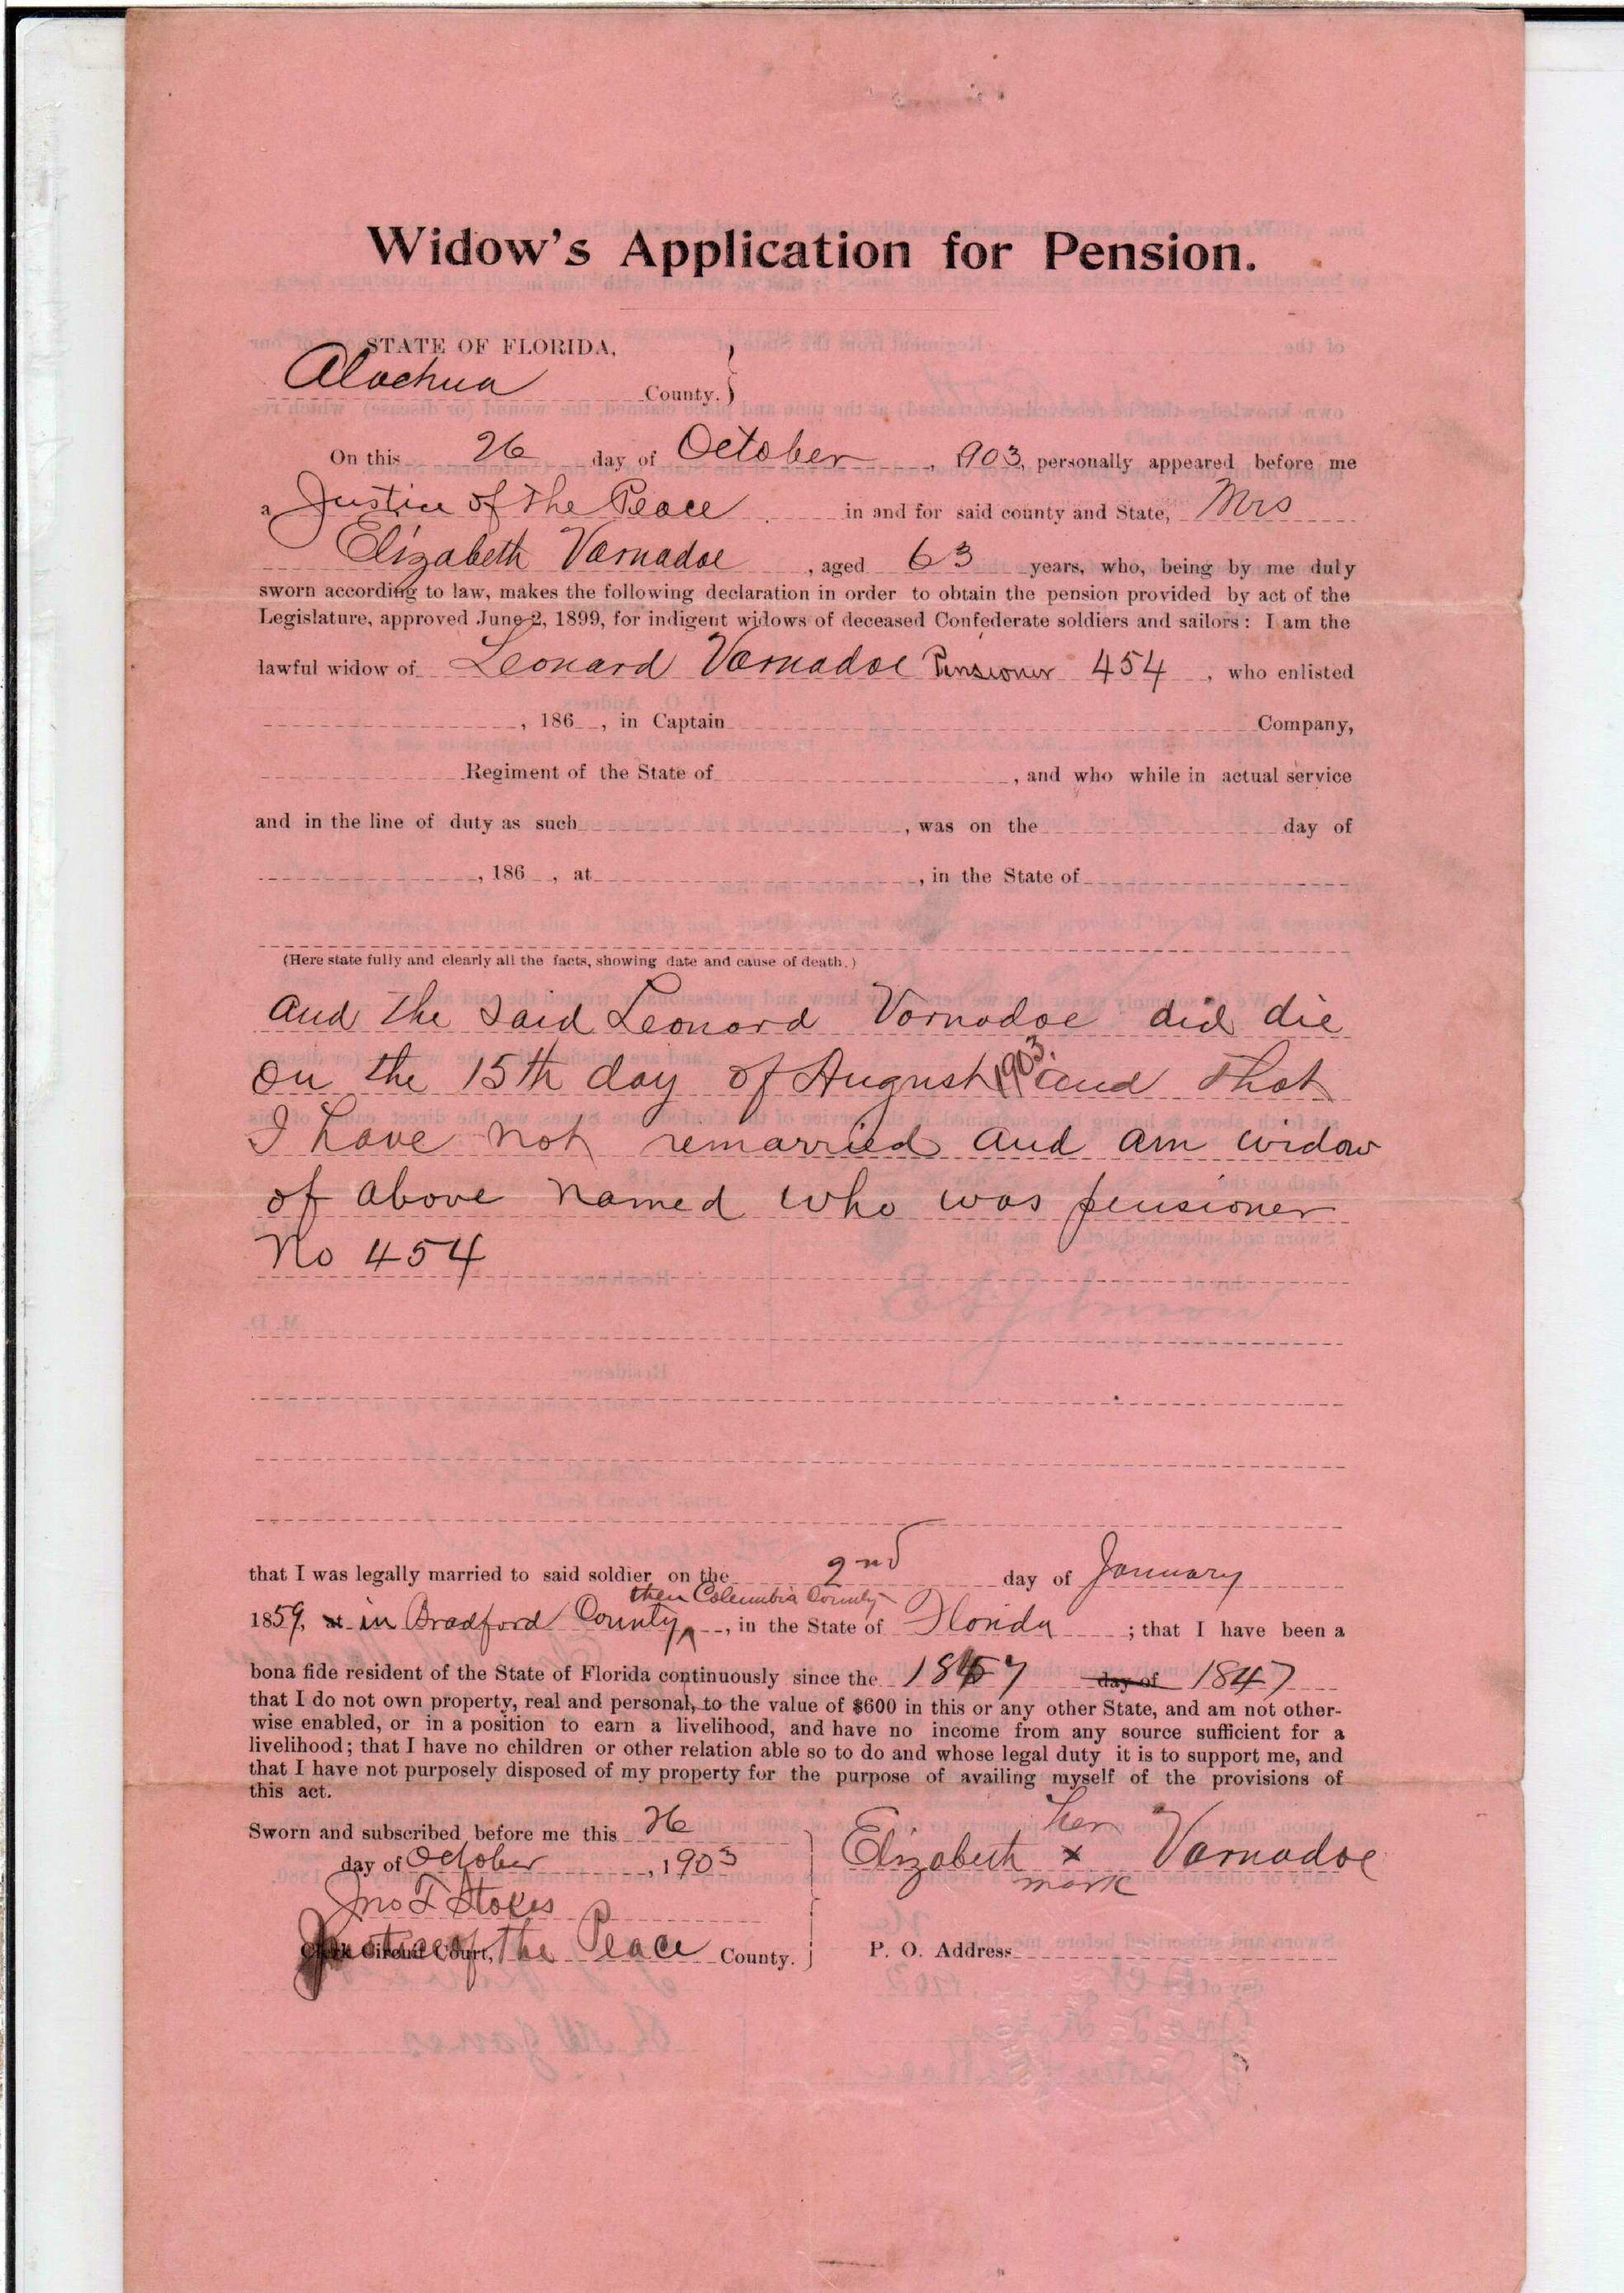 Widow's Application for Pension.
STATE OF FLORIDA,
Alachua County. }
On this 26 day of October, 1903, personally appeared before me
a Justice of the Peace in and for said county and State, Mrs
Elizabeth Varnadoe, aged 63 years, who, being by me duly
sworn according to law, makes the following declaration in order to obtain the pension provided by act of the
Legislature, approved June 2, 1899, for indigent widows of deceased Confederate soldiers and sailors: I am the
lawful widow of Leonard Varnadoe Pensioner 454, who enlisted
, 186 , in Captain Company,
Regiment of the State of , and who while in actual service
and in the line of duty as such , was on the day of
, 186 , at , in the State of
(Here state fully and clearly all the facts, showing date and cause of death.)
and the said Leonard Varnadoe did die
on the 15th day of August 1903. and that
I have not remarried and am widow
of above named who was pensioner
No 454
that I was legally married to said soldier on the 2nd day of January
then Columbia County
1859, at in Bradford County, in the State of Florida; that I have been a
bona fide resident of the State of Florida continuously since the 1847 day of 1847
that I do not own property, real and personal, to the value of $600 in this or any other State, and am not other-
wise enabled, or in a position to earn a livelihood, and have no income from any source sufficient for a
livelihood; that I have no children or other relation able so to do and whose legal duty it is to support me, and
that I have not purposely disposed of my property for the purpose of availing myself of the provisions of
this act.
Sworn and subscribed before me this 26
day of October, 1903
Jno T Stokes
Clerk Circuit Court, Justice of the Peace County.
her
Elizabeth x Varnadoe
mark
P. O. Address